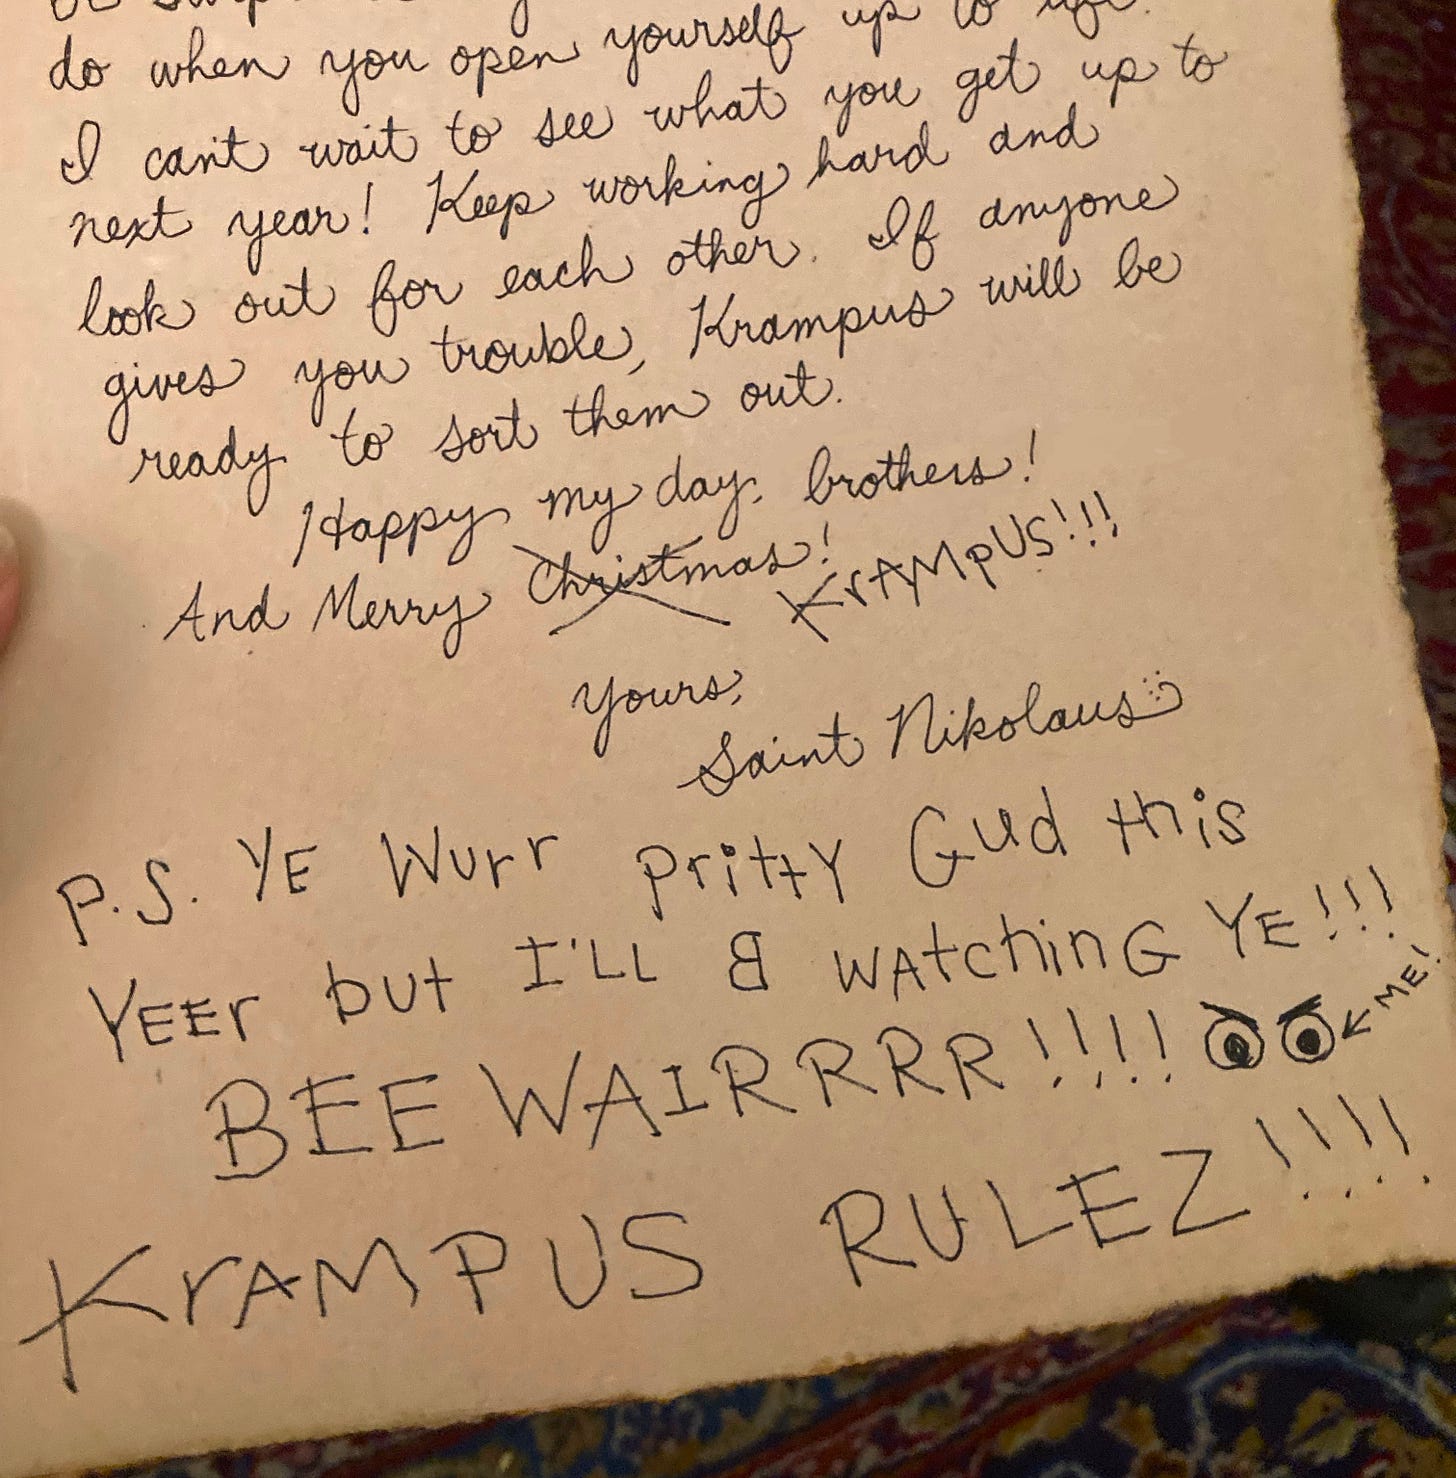 do when you open yourself up to
I can't wait to see what you get up to
next year! Keep working hard and
look out for each other. If anyone
gives you trouble, Krampus will be
ready to sort them out.
Happy my day, brothers!
And Merry Christmas! KrAMpUS!!!
Yours,
Saint Nikolaus
P.S. YE Wurr PrittY Gud this
YEEr but I'LL B WAtchinG YE!!!
BEEWAIRRRR!!!! ← ME!
KrAMPUS RULEZ!!!!